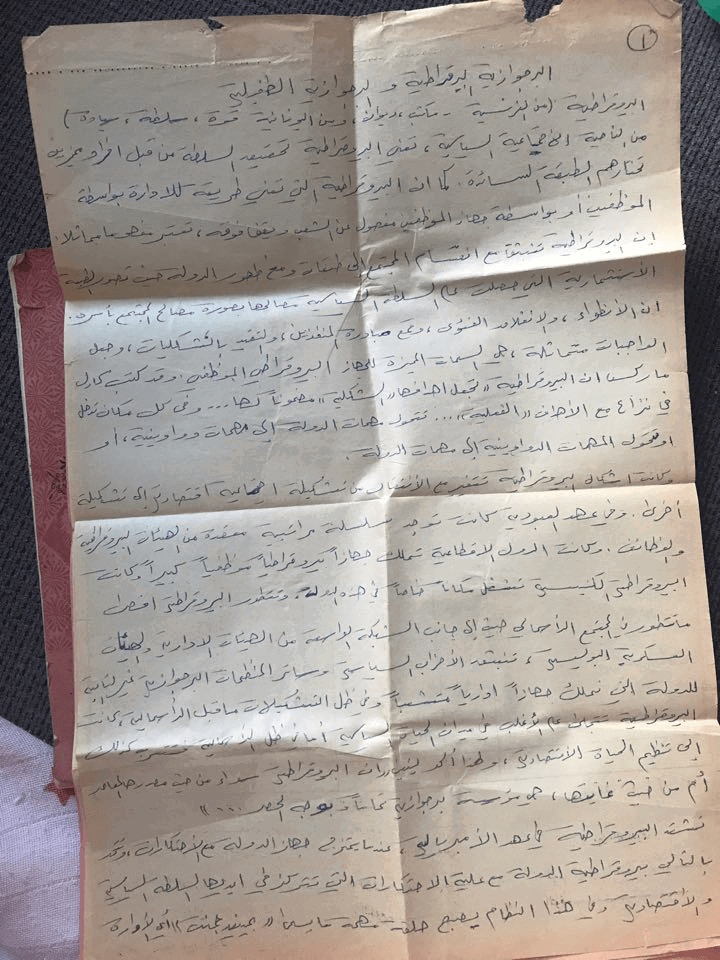 ١
البرجوازية البيرقراطية والبرجوازية الطفيلية
البيروقراطية (من الفرنسية - مكتب، ديوان، ومن اليونانية قوة، سلطة، سيادة)
من الناحية الاجتماعية السياسية، تعني البيروقراطية تحقيق السلطة من قبل افراد
تختارهم الطبقة السائدة. كما ان البيروقراطية التي تعني طريقة للادارة بواسطة
الموظفين أو بواسطة جهاز الموظفين مفصول عن الشعب ويقف فوقه، تعتبر مفهوما مماثلا.
إن البيروقراطية تنبثق مع انقسام المجتمع إلى طبقات ومع ظهور الدولة حيث تصور الطبقة
الاستثمارية التي حصلت على السلطة السياسية مصالحها بصورة مصالح المجتمع بأسره.
ان الأنطواء، والانغلاق الفئوي، وقمع مبادرة المنفذين، والتقيد بالشكليات، وجعل
الواجبات متماثلة، هي السمات المميزة للجهاز البيروقراطي الموظفي. وقد كتب كارل
ماركس ان البيروقراطية «تجعل اهدافها «الشكلية» مضمونا لها... وفي كل مكان تدخل
في نزاع مع الأهداف «الفعلية»... تتحول مهمات الدولة إلى مهمات دواوينية، أو
او تتحول المهمات الدواوينية إلى مهمات الدولة.
وكانت اشكال البيروقراطية تتغير مع الأنتقال من تشكيلة اجتماعية اقتصادية إلى تشكيلة
أخرى. وفي عهد العبودية كانت توجد سلسلة مراتبية معقدة من الهيئات البيروقراطية
والوظائف. وكانت الدول الاقطاعية تملك جهازاً بيروقراطياً موظفياً كبيراً وكانت
البيروقراطية الكنيسية تشغل مكاناً خاصاً في هذه الدولة. وتتطور البيروقراطية اقصى
ما تتطور في المجتمع الرأسمالي حيث إلى جانب الشبكة الواسعة من الهيئات الادارية والهيئات
العسكرية البوليسية، تنبثق الأحزاب السياسية وسائر المنظمات البرجوازية غير التابعة
للدولة التي تملك جهازاً ادارياً متشعباً وفي ظل التشكيلات ما قبل الرأسمالية، كانت
البيروقراطية تتجلى على الأغلب في ميدان الحياة السياسية أما في ظل الرأسمالية فتتسرب كذلك
إلى تنظيم الحياة الأقتصادية، البيروقراطية سواء من حيث مصدرها
أم من حيث غاياتها، هي مؤسسة برجوازية تماماً وبوجه الحصر...»
تشتد البيروقراطية في عهد الأمبريالية، عندما يمتزج جهاز الدولة مع الأحتكارات، وتتحد
بالتالي بيروقراطية الدولة مع علية الاحتكارات التي تتركز في ايديها السلطة السياسية
والأقتصادية وفي هذا النظام يصبح حلقة مهمة ما يسمى أي الأدارة